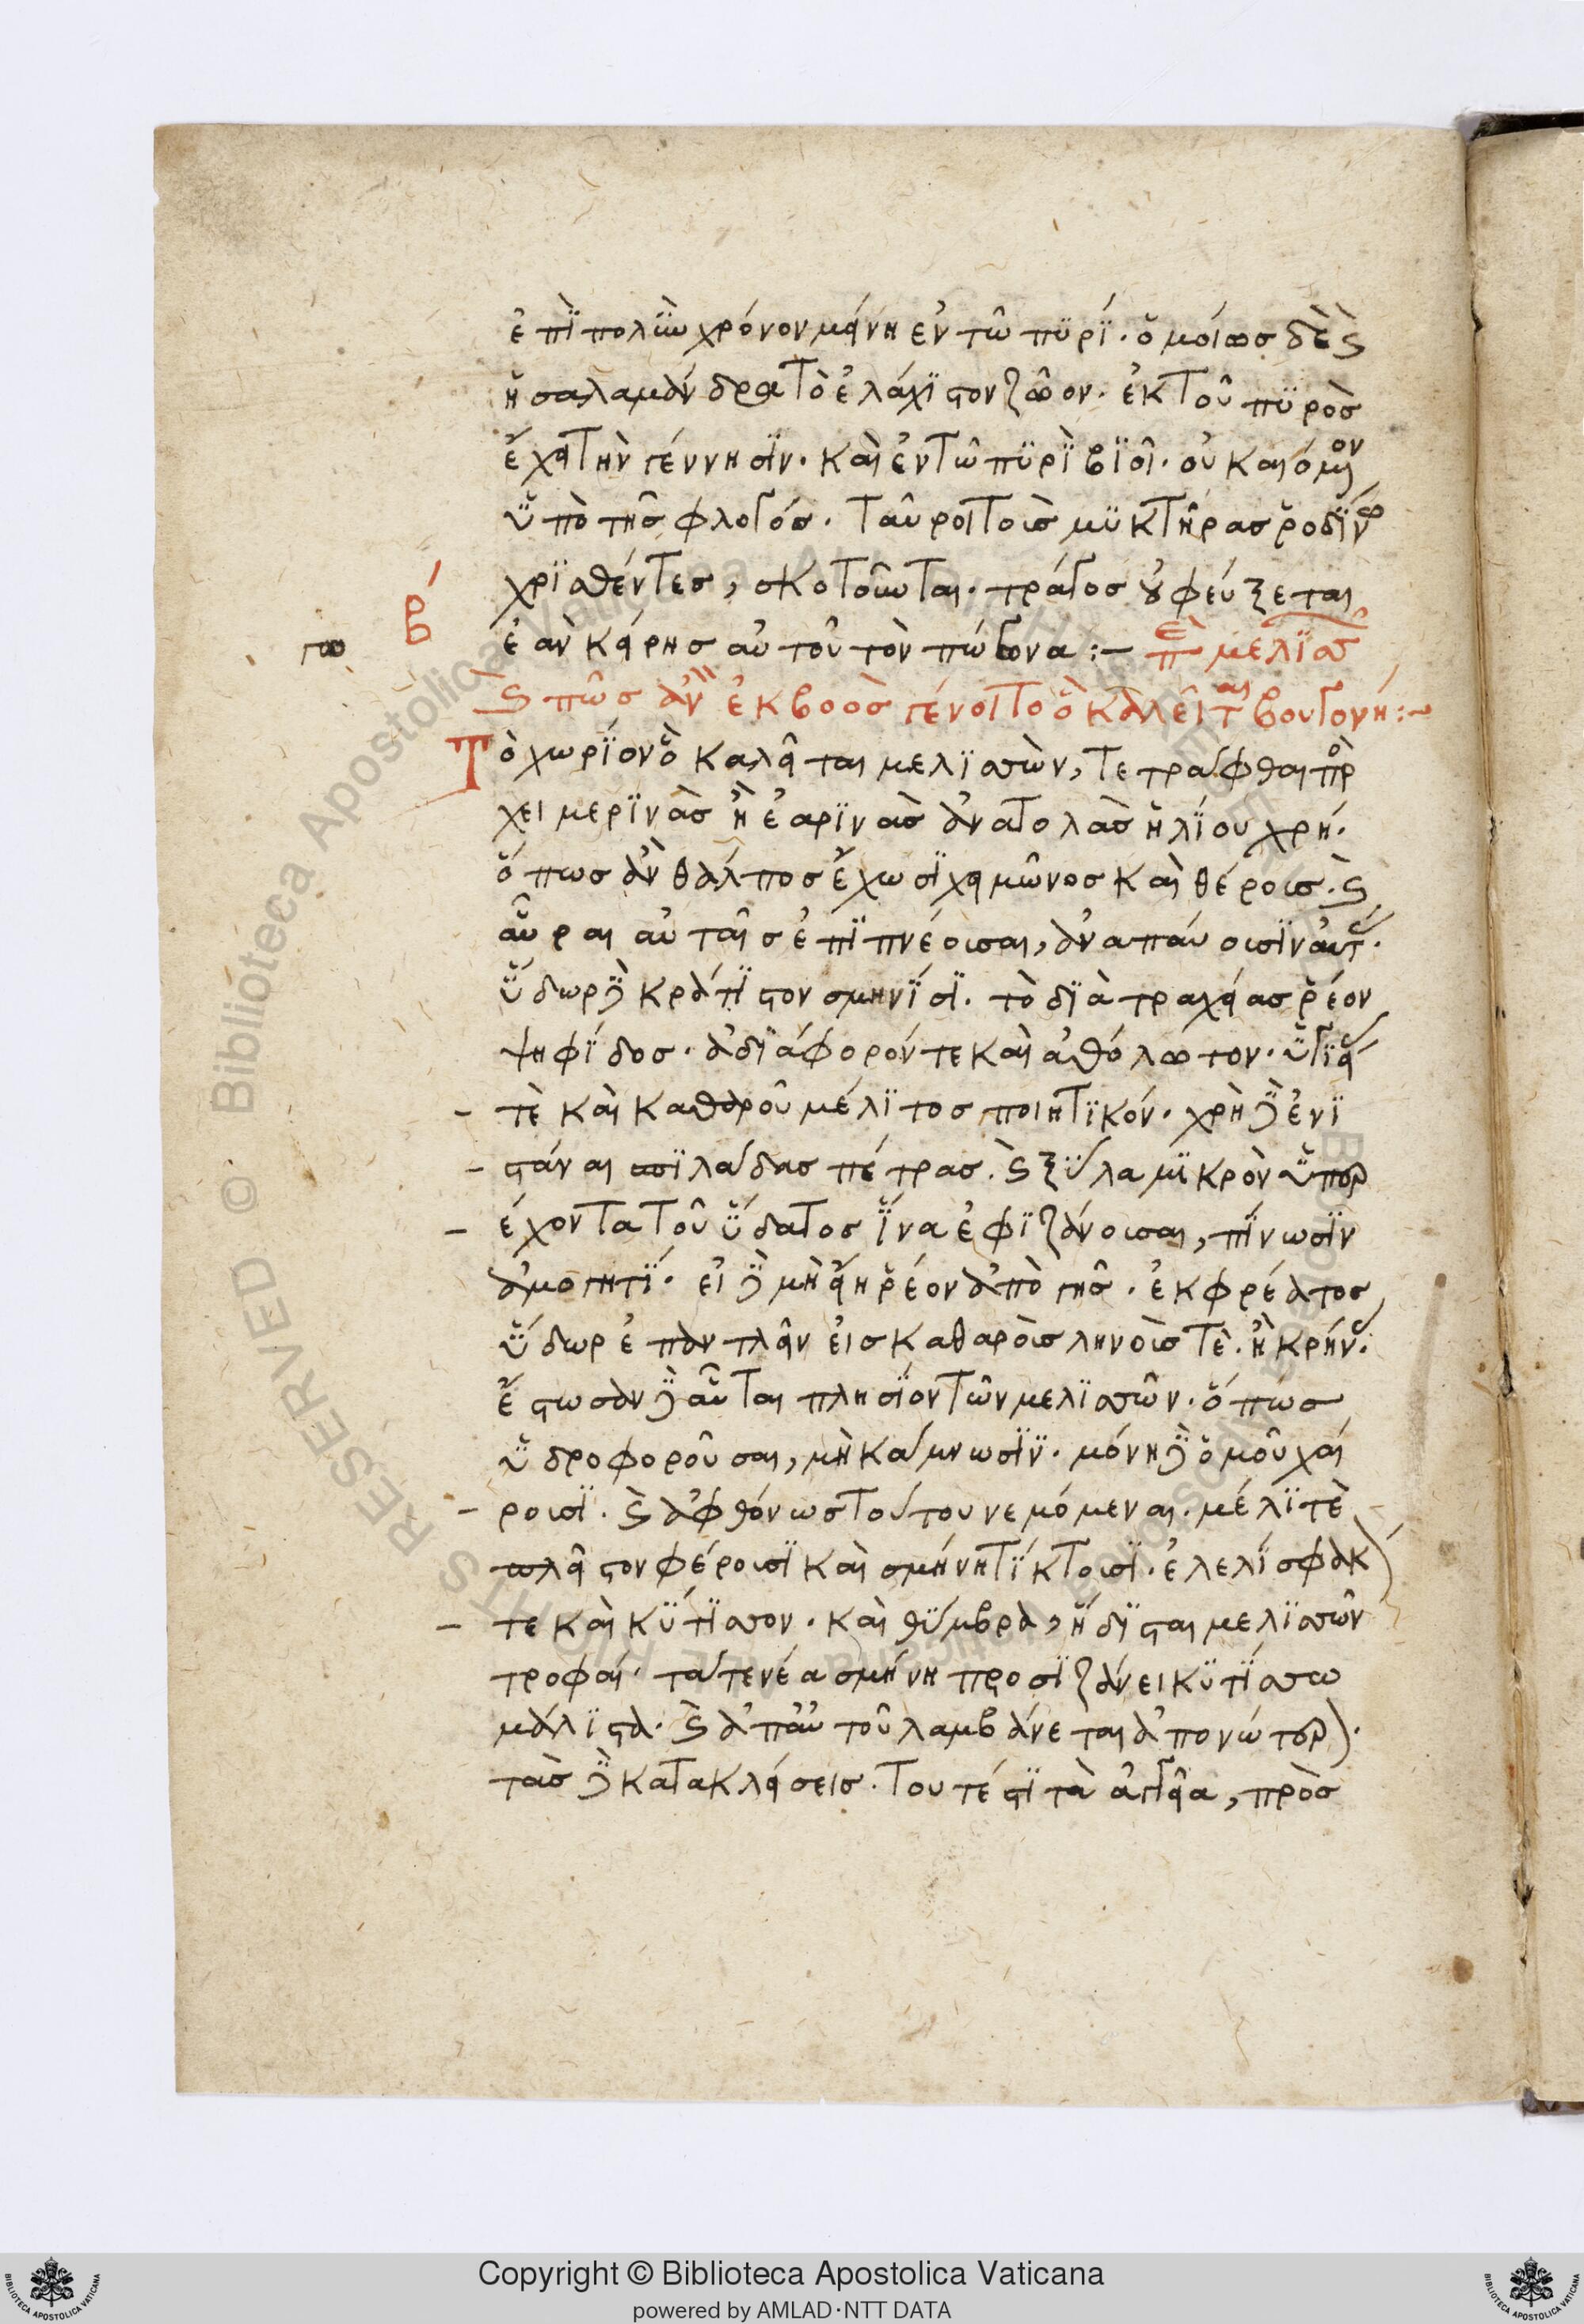 ἐπῒ πολὺν χρόνον μείνη ἐν τῶ πϋρΐ. ὁμοίως δὲ ϗ
ἡ σαλαμάνδρα τὸ ἐλάχϊστον ζῶον. ἐκ τοῦ πϋρὸς
ἔχει τὴν γέννησϊν. καὶ ἐν τῶ πϋρῒ βϊοῖ. οὐ καιόμενον
ὑπὸ τῆς φλογός. ταῦροι τοὺς μϋκτῆρας ῥοδΐνω
χρϊσθέντες, σκοτοῦνται. τράγος οὐ φεύξεται
β´
ἐὰν κείρης αὐτοῦ τὸν πώγωνα :- περὶ μελϊσσῶν
ϗ πῶς ἂν ἐκ βοὸς γένοιτο ὃ καλεῖται βουγονή :-
Τὸ χωρΐον ὃ καλεῖται μελϊσσὼν, τετράφθαι πρὸς
χειμερϊνὰς ἢ ἐαρϊνὰς ἀνατολὰς ἡλΐου χρή.
ὅπως ἂν θάλπος ἔχωσϊ χειμῶνος καὶ θέρους. ϗ
αὖραι αὐταῖς ἐπϊπνέουσαι, ἀναπαύουσϊν αὐτάς.
ὕδωρ δὲ κράτϊστον σμηνΐσϊ. τὸ δϊὰ τραχείας ῥέον
ψηφΐδος. ἀδϊάφορόν τε καὶ ἀθόλωτον. ὑγϊείας
τὲ καὶ καθαροῦ μέλϊτος ποιητϊκόν. χρὴ δὲ ἐνϊ
στάναι σπϊλάδας πέτρας. ϗ ξΰλα μϊκρὸν ὑπερ
έχοντα τοῦ ὕδατος ἵνα ἐφϊζάνουσαι, πΐνωσϊν
ἀμογητΐ. εἰ δὲ μὴ εἴη ῥέον ἀπὸ γῆς. ἐκ φρέατος
ὕδωρ ἐπαντλεῖν εἰς καθαροὺς ληνοὺς τὲ. ἢ κρήνας.
ἔστωσαν δὲ αὗται πλησΐον τῶν μελϊσσῶν. ὅπως
ὑδροφοροῦσαι, μὴ κάμνωσϊν. μόνη δὲ ὁμοῦ χαί
ρουσϊ. ϗ ἀφθόνως τούτου νεμόμεναι. μέλϊ τὲ
πλεῖστον φέρουσϊ καὶ σμήνη τΐκτουσϊ. ἐλελΐσφακον
τε καὶ κϋτΐσσον. καὶ θΰμβρα, ἥδϊσται μελϊσσῶν
τροφαί. τά τε νέα σμήνη προσϊζάνει κϋτΐσσω
μάλϊστα. ϗ ἀπ' αὐτοῦ λαμβάνεται ἀπονώτερον.
τὰς δὲ κατακλείσεις. τουτέστϊ τὰ ἀγγεῖα, πρὸς
Copyright © Biblioteca Apostolica Vaticana
powered by AMLAD·NTT DATA